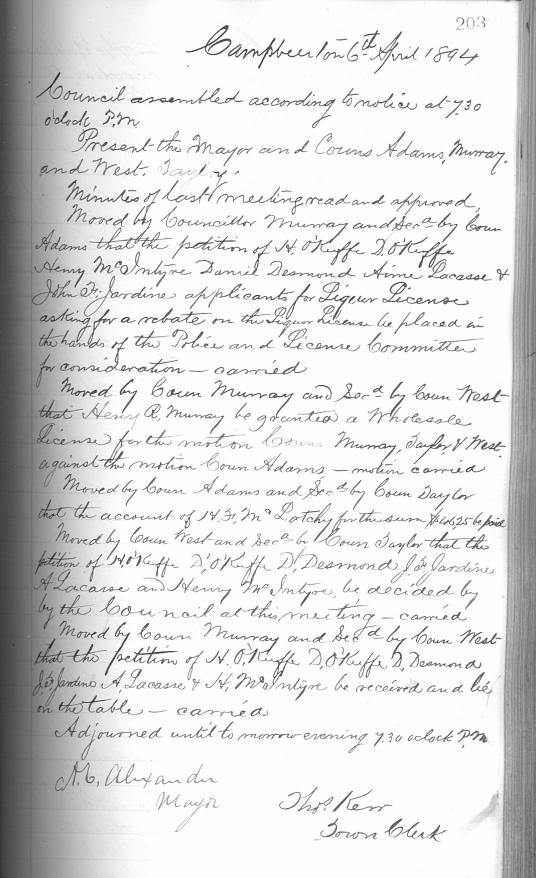 203
Campbellton 6th April 1894
Council assembled according to notice at 7.30
oclock P.M
Present the Mayor and Couns Adams, Murray,
and West. Taylor.
Minutes of last meeting read and approved,
Moved by Councillor Murray and Secd by Coun
Adams that the petition of H. O'Keffe D. O'Keffe
Henry McIntyre Daniel Desmond Aime Lacasse &
John F. Jardine applicants for Liquor License
asking for a rebate on the Liquor License be placed in
the hands of the Police and License Committee
for consideration — carried
Moved by Coun Murray and Secd by Coun West
that Henry A. Murray be granted a Wholesale
License for the motion Couns Murray, Taylor & West.
against the motion Coun Adams — motion carried
Moved by Coun Adams and Secd by Coun Taylor
that the account of H. F. McLatchy for the sum $46,25 be paid
Moved by Coun West and Secd by Coun Taylor that the
petition of H. O'Keffe D, O'Keffe D, Desmond J. F. Jardine
A Lacasse and Henry McIntyre, be decided by
by the Council at this meeting — carried
Moved by Coun Murray and Secd by Coun West
that the petition of H. O, Keffe D, O'Keffe D, Desmond
J. F. Jardine A, Lacasse & H, McIntyre be received and lie
on the table — carried
Adjourned until to morrow evening 7.30 oclock P.M
Alexander
Mayor
Thos. Kerr
Town Clerk